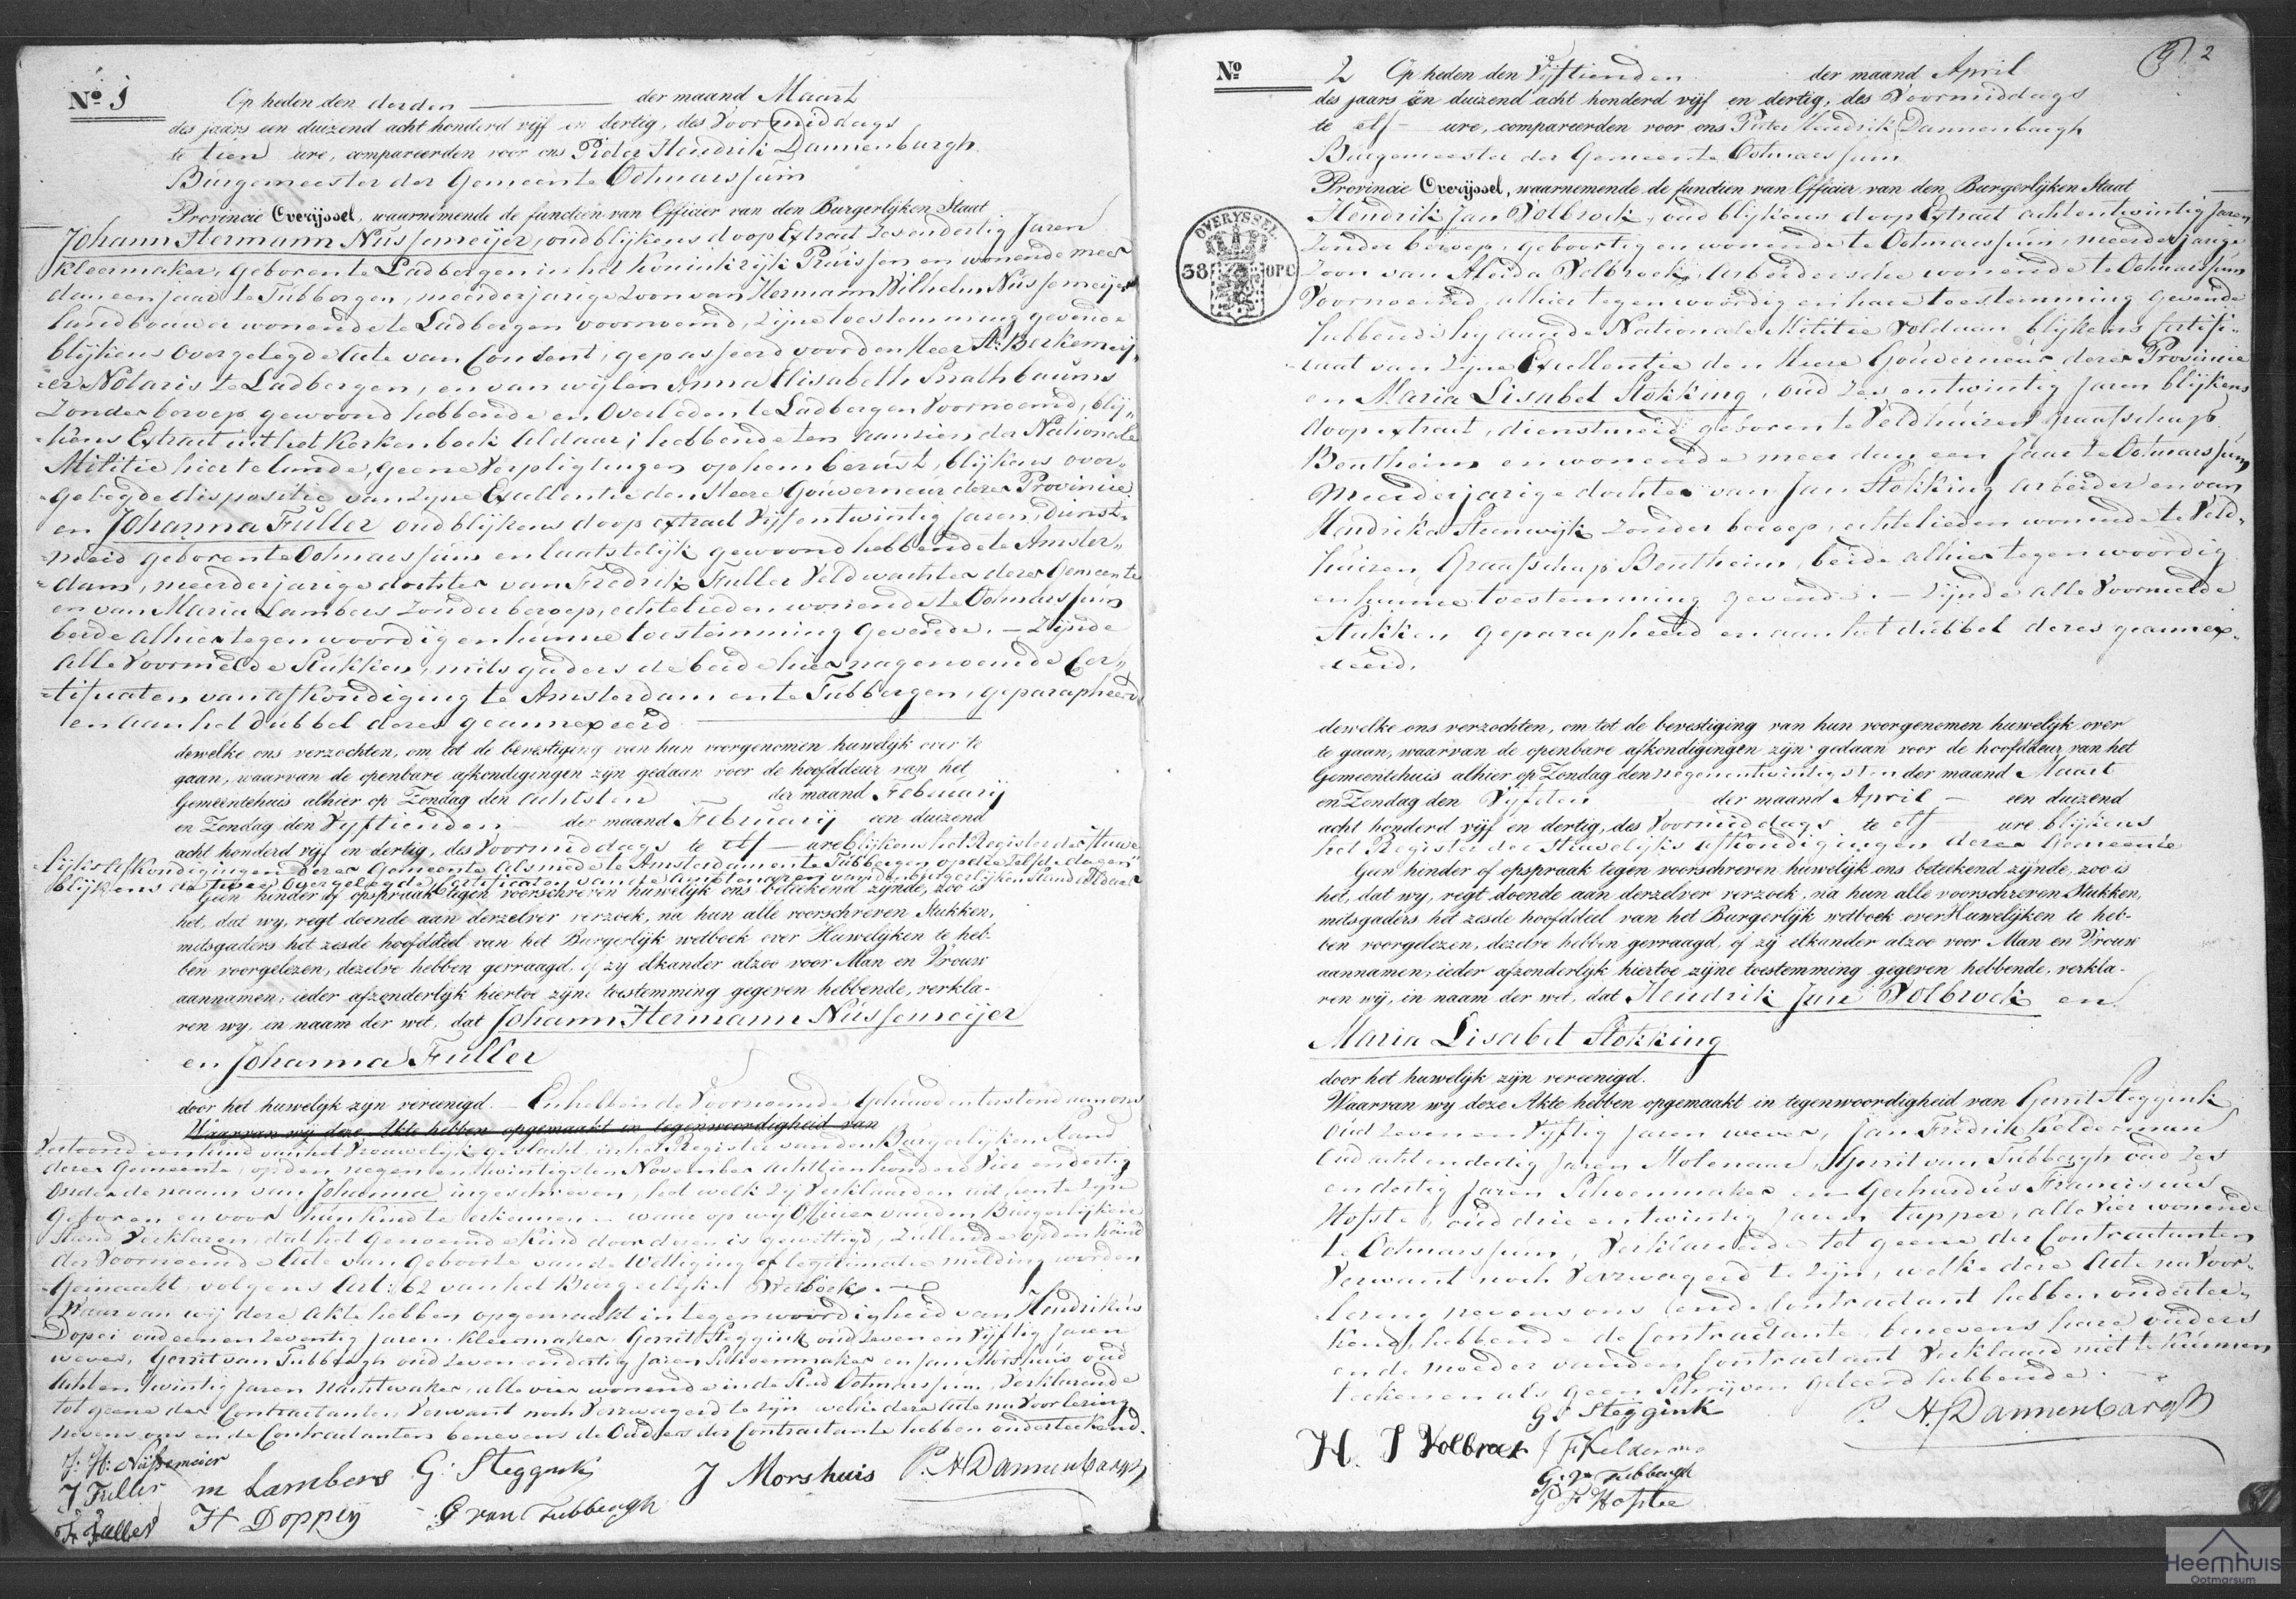 No 1 Op heden den derden der maand Maart
des jaars een duizend acht honderd vijf en dertig, des Voormiddags
te tien ure, compareerden voor ons Pieter Hendrik Dannenbargh
Burgemeester der Gemeente Ootmarssum
Provincie Overijssel, waarnemende de functien van Officier van den Burgerlijken Staat
Johann Hermann Nüssemeijer, oud blijkens doop Extract zes en dertig Jaren
Kleermaker, geboren te Ladbergen in het Koninkrijk Pruissen en wonende meer
dan een jaar te Tubbergen, meerderjarige zoon van Hermann Wilhelm Nüssemeijer
Landbouwer wonende te Ladbergen voornoemd, zijne toestemming gevende
blijkens overgelegde Acte van Consent, gepasseerd voor den Heer A: Berkemeij„
er Notaris te Ladbergen, en van wijlen Anna Elisabeth Snathbaums
zonder beroep gewoond hebbende en Overleden te Ladbergen Voornoemd, blij„
kens Extract uit het Kerkenboek Aldaar; hebbende ten aanzien der Nationale
Militie hier te lande, geene Verpligtingen op hem berust, blijkens over„
gelegde dispositie van Zijne Excellentie den Heere Gouverneur dezer Provincie
en Johanna Fuller oud blijkens doop extract Vijf en twintig Jaren, Dienst„
meid geboren te Ootmarssum en laatstelijk gewoond hebbende te Amster„
dam, meerderjarige dochter van Fredrik Fuller Veldwachter dezer Gemeente
en van Maria Lambers zonder beroep, echtelieden wonende te Ootmarssum
beide alhier tegenwoordig en hunne toestemming gevende. — Zijnde
alle Voormelde Stukken, mitsgaders de beide hier nagenoemde Cer„
tificaten van afkondiging te Amsterdam en te Tubbergen, geparapheerd
en aan het dubbel dezes geannexeerd
dewelke ons verzochten, om tot de bevestiging van hun voorgenomen huwelijk over te
gaan, waarvan de openbare afkondigingen zijn gedaan voor de hoofddeur van het
Gemeentehuis alhier op Zondag den achtsten der maand Februarij
en Zondag den Vyftienden der maand Februarij een duizend
acht honderd vijf en dertig, des Voormiddags te elf ure blijkens het Register der Huwe„
lijks Afkondigingen dezer Gemeente alsmede te Amsterdam en te Tubbergen op de zelfde dagen
blijkens de twee Overgelegde Certificaten van de Ambtenaren van den burgerlijken Stand aldaar
Geen hinder of opspraak tegen voorschreven huwelijk ons beteekend zijnde, zoo is
het, dat wy, regt doende aan derzelver verzoek, na hun alle voorschreven Stukken,
mitsgaders het zesde hoofddeel van het Burgerlijk wetboek over Huwelijken te heb-
ben voorgelezen, dezelve hebben gevraagd, of zij elkander alzoo voor Man en Vrouw
aannamen; ieder afzonderlijk hiertoe zijne toestemming gegeven hebbende, verkla-
ren wy, in naam der wet, dat Johann Hermann Nüssemeijer
en Johanna Fuller
door het huwelijk zijn vereenigd. — En hebben de Voornoemde Gehuwden terstond aan ons
Waarvan wij deze Akte hebben opgemaakt in tegenwoordigheid van
Vertoond een kind van het Vrouwelijk geslacht in het Register van den Burgerlijken Stand
dezer Gemeente, op den negen en twintigsten November achttienhonderd Vier en dertig
onder de naam van Johanna ingeschreven, het welk zij verklaarden uit hen te zijn
geboren en voor hun kind te erkennen. — waar op wij Officier van den Burgerlijken
Stand Verklaren, dat het genoemde Kind door dezen is gewettigd, zullende op den kant
der Voornoemde Acte van geboorte van de wettiging of legitimatie melding worden
gemaakt volgens Art: 62 van het Burgerlijk Wetboek.
Waarvan wij deze Akte hebben opgemaakt in tegenwoordigheid van Hendrikus
Dopei oud een en zeventig Jaren Kleermaker, Gerrit Steggink oud zeven en Vijftig Jaren
wever, Gerrit van Tubbergh oud zeven en dertig Jaren Schoenmaker en Jan Morshuis oud
acht en twintig Jaren Nachtwaker, alle vier wonende in de Stad Ootmarssum, verklarende
tot geene der Contractanten Verwant noch Verzwagerd te zijn welke deze Acte na Voorlezing
nevens ons en de Contractanten benevens de Ouders der Contractante hebben onderteekend.
J: H: Nüssemeier
J Fuller m Lambers G: Steggink J Morshuis P. H Dannenbargh
F: Fuller H Doppen G van Tubbergh
9 2
No 2 Op heden den Vijftienden der maand April
des jaars een duizend acht honderd vijf en dertig, des Voormiddags
te elf ure, compareerden voor ons Pieter Hendrik Dannenbargh
Burgemeester der Gemeente Ootmarssum
Provincie Overijssel, waarnemende de functien van Officier van den Burgerlijken Staat
OVERYSSEL
38 OPC
Hendrik Jan Volbroek, oud blijkens doop Extract acht en twintig Jaren
zonder beroep, geboortig en wonende te Ootmarssum, meerderjarige
zoon van Aleida Volbroek, Arbeidersche wonende te Ootmarssum
Voornoemd, alhier tegenwoordig en hare toestemming gevende
hebbende hy aan de Nationale Militie voldaan blijkens Certifi„
caat van zijne Excellentie den Heere Gouverneur dezer Provincie
en Maria Lisabet Stokking, oud zes en twintig Jaren blijkens
doop extract, dienstmeid geboren te Veldhuizen Graafschap
Bentheim en wonende meer dan een Jaar te Ootmarssum
meerderjarige dochter van Jan Stokking Arbeider en van
Hendrika Steenwijk zonder beroep, echtelieden wonende te Veld„
huizen, Graafschap Bentheim, beide alhier tegenwoordig
en hunne toestemming gevende. — Zijnde alle Voormelde
Stukken, geparapheerd en aan het dubbel dezes geannex„
eerd.
dewelke ons verzochten, om tot de bevestiging van hun voorgenomen huwelijk over
te gaan, waarvan de openbare afkondigingen zijn gedaan voor de hoofddeur van het
Gemeentehuis alhier op Zondag den negen en twintigsten der maand Maart
en Zondag den Vijfden der maand April een duizend
acht honderd vijf en dertig, des Voormiddags te elf ure blijkens
het Register der Huwelijks afkondigingen dezer Gemeente
Geen hinder of opspraak tegen voorschreven huwelijk ons beteekend zijnde, zoo is
het, dat wy, regt doende aan derzelver verzoek, na hun alle voorschreven Stukken,
mitsgaders het zesde hoofddeel van het Burgerlijk wetboek over Huwelijken te heb-
ben voorgelezen, dezelve hebben gevraagd, of zij elkander alzoo voor Man en Vrouw
aannamen; ieder afzonderlijk hiertoe zijne toestemming gegeven hebbende, verkla-
ren wij, in naam der wet, dat Hendrik Jan Volbroek en
Maria Lisabet Stokking
door het huwelijk zijn vereenigd.
Waarvan wy deze Akte hebben opgemaakt in tegenwoordigheid van Gerrit Steggink
Oud zeven en Vijftig Jaren wever, Jan Fredrik Kelderman
Oud acht en dertig Jaren Molenaar, Gerrit van Tubbergh oud zes
en dertig Jaren Schoenmaker en Gerhardus Franciscus
Hofste, oud drie en twintig Jaren tapper, alle Vier wonende
te Ootmarssum, Verklarende tot geene der Contractanten
Verwant noch Verzwagerd te zijn, welke deze Acte na Voor„
lezing nevens ons en de Contractant hebben onderteе„
kend, hebbende de Contractante, benevens hare ouders
en de moeder van den Contractant Verklaard niet te kunnen
teekenen als geen Schrijven geleerd hebbende.
G: Steggink P. H. Dannenbargh
H. J Volbroek J F Kelderman
G: v Tubbergh
G F Hofste
Heemhuis
Ootmarsum